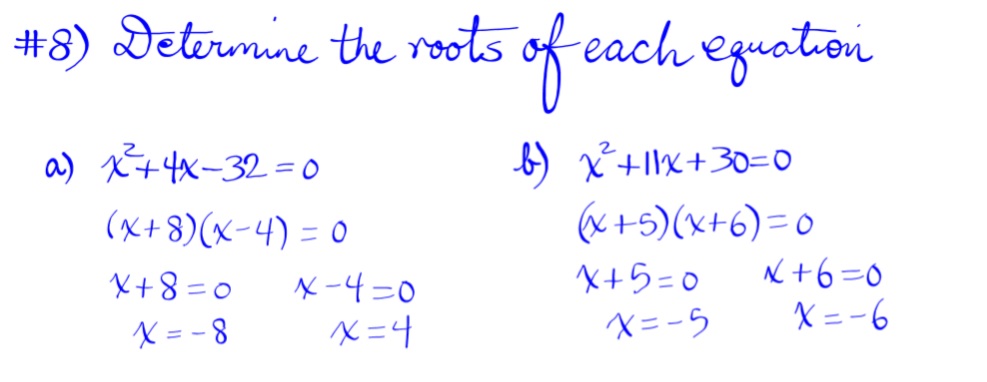 #8) Determine the roots of each equation
a) x²+4x-32=0
(x+8)(x-4)=0
x+8=0 x-4=0
x=-8 x=4
b) x²+11x+30=0
(x+5)(x+6)=0
x+5=0 x+6=0
x=-5 x=-6